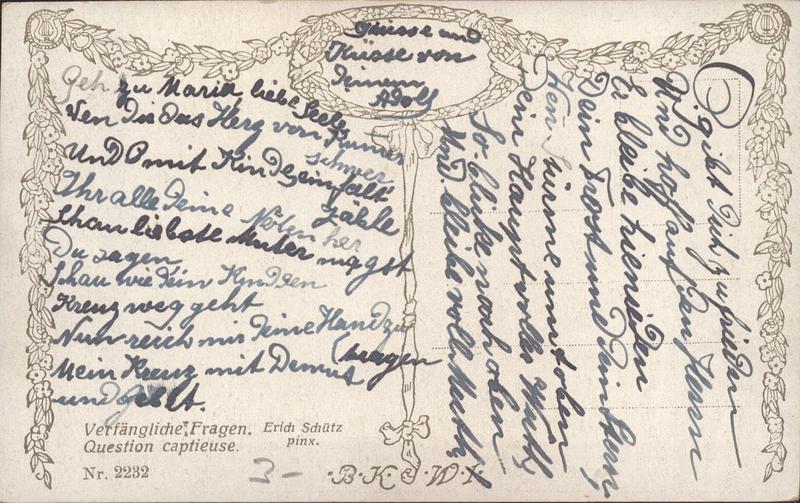 Grüsse und
Küsse von
Deinem
Adolf
Geh zu Maria liebe Seele
Wen Dir das Herz von Kumer
schwer
Und O mit Kindeseinfalt
zähle
Ihr alle Deine Nöten her
Schau liebste Muter magst
Du sagen
Schau wie Dein Kind den
Kreuzweg geht
Nun reich mir Deine Hand zu
tragen
Mein Kreuz mit Demut
und
O gib Dich zufrieden
Und hoff auf den Herrn
Er bleibe hienieden
Dein Trost und Dein Stern,
Wen Stürme umtoben
Dein Haupt voller Wuth
So blicke nach oben
Und bleibe voll Muth
Verfängliche Fragen. Erich Schütz
Question captieuse. pinx.
Nr. 2232
3-
B.K.W.I.